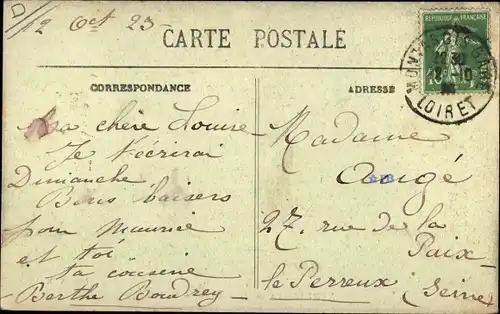 D
12 Oct 23
CARTE POSTALE
CORRESPONDANCE
ADRESSE
REPUBLIQUE FRANÇAISE
LOIRET
Ma chère Louise
Je t'écrirai
Dimanche
Bons baisers
pour Maurice
et toi
ta cousine
Berthe Boudrey
Madame
Augé
27. rue de la
Paix
le Perreux (Seine)